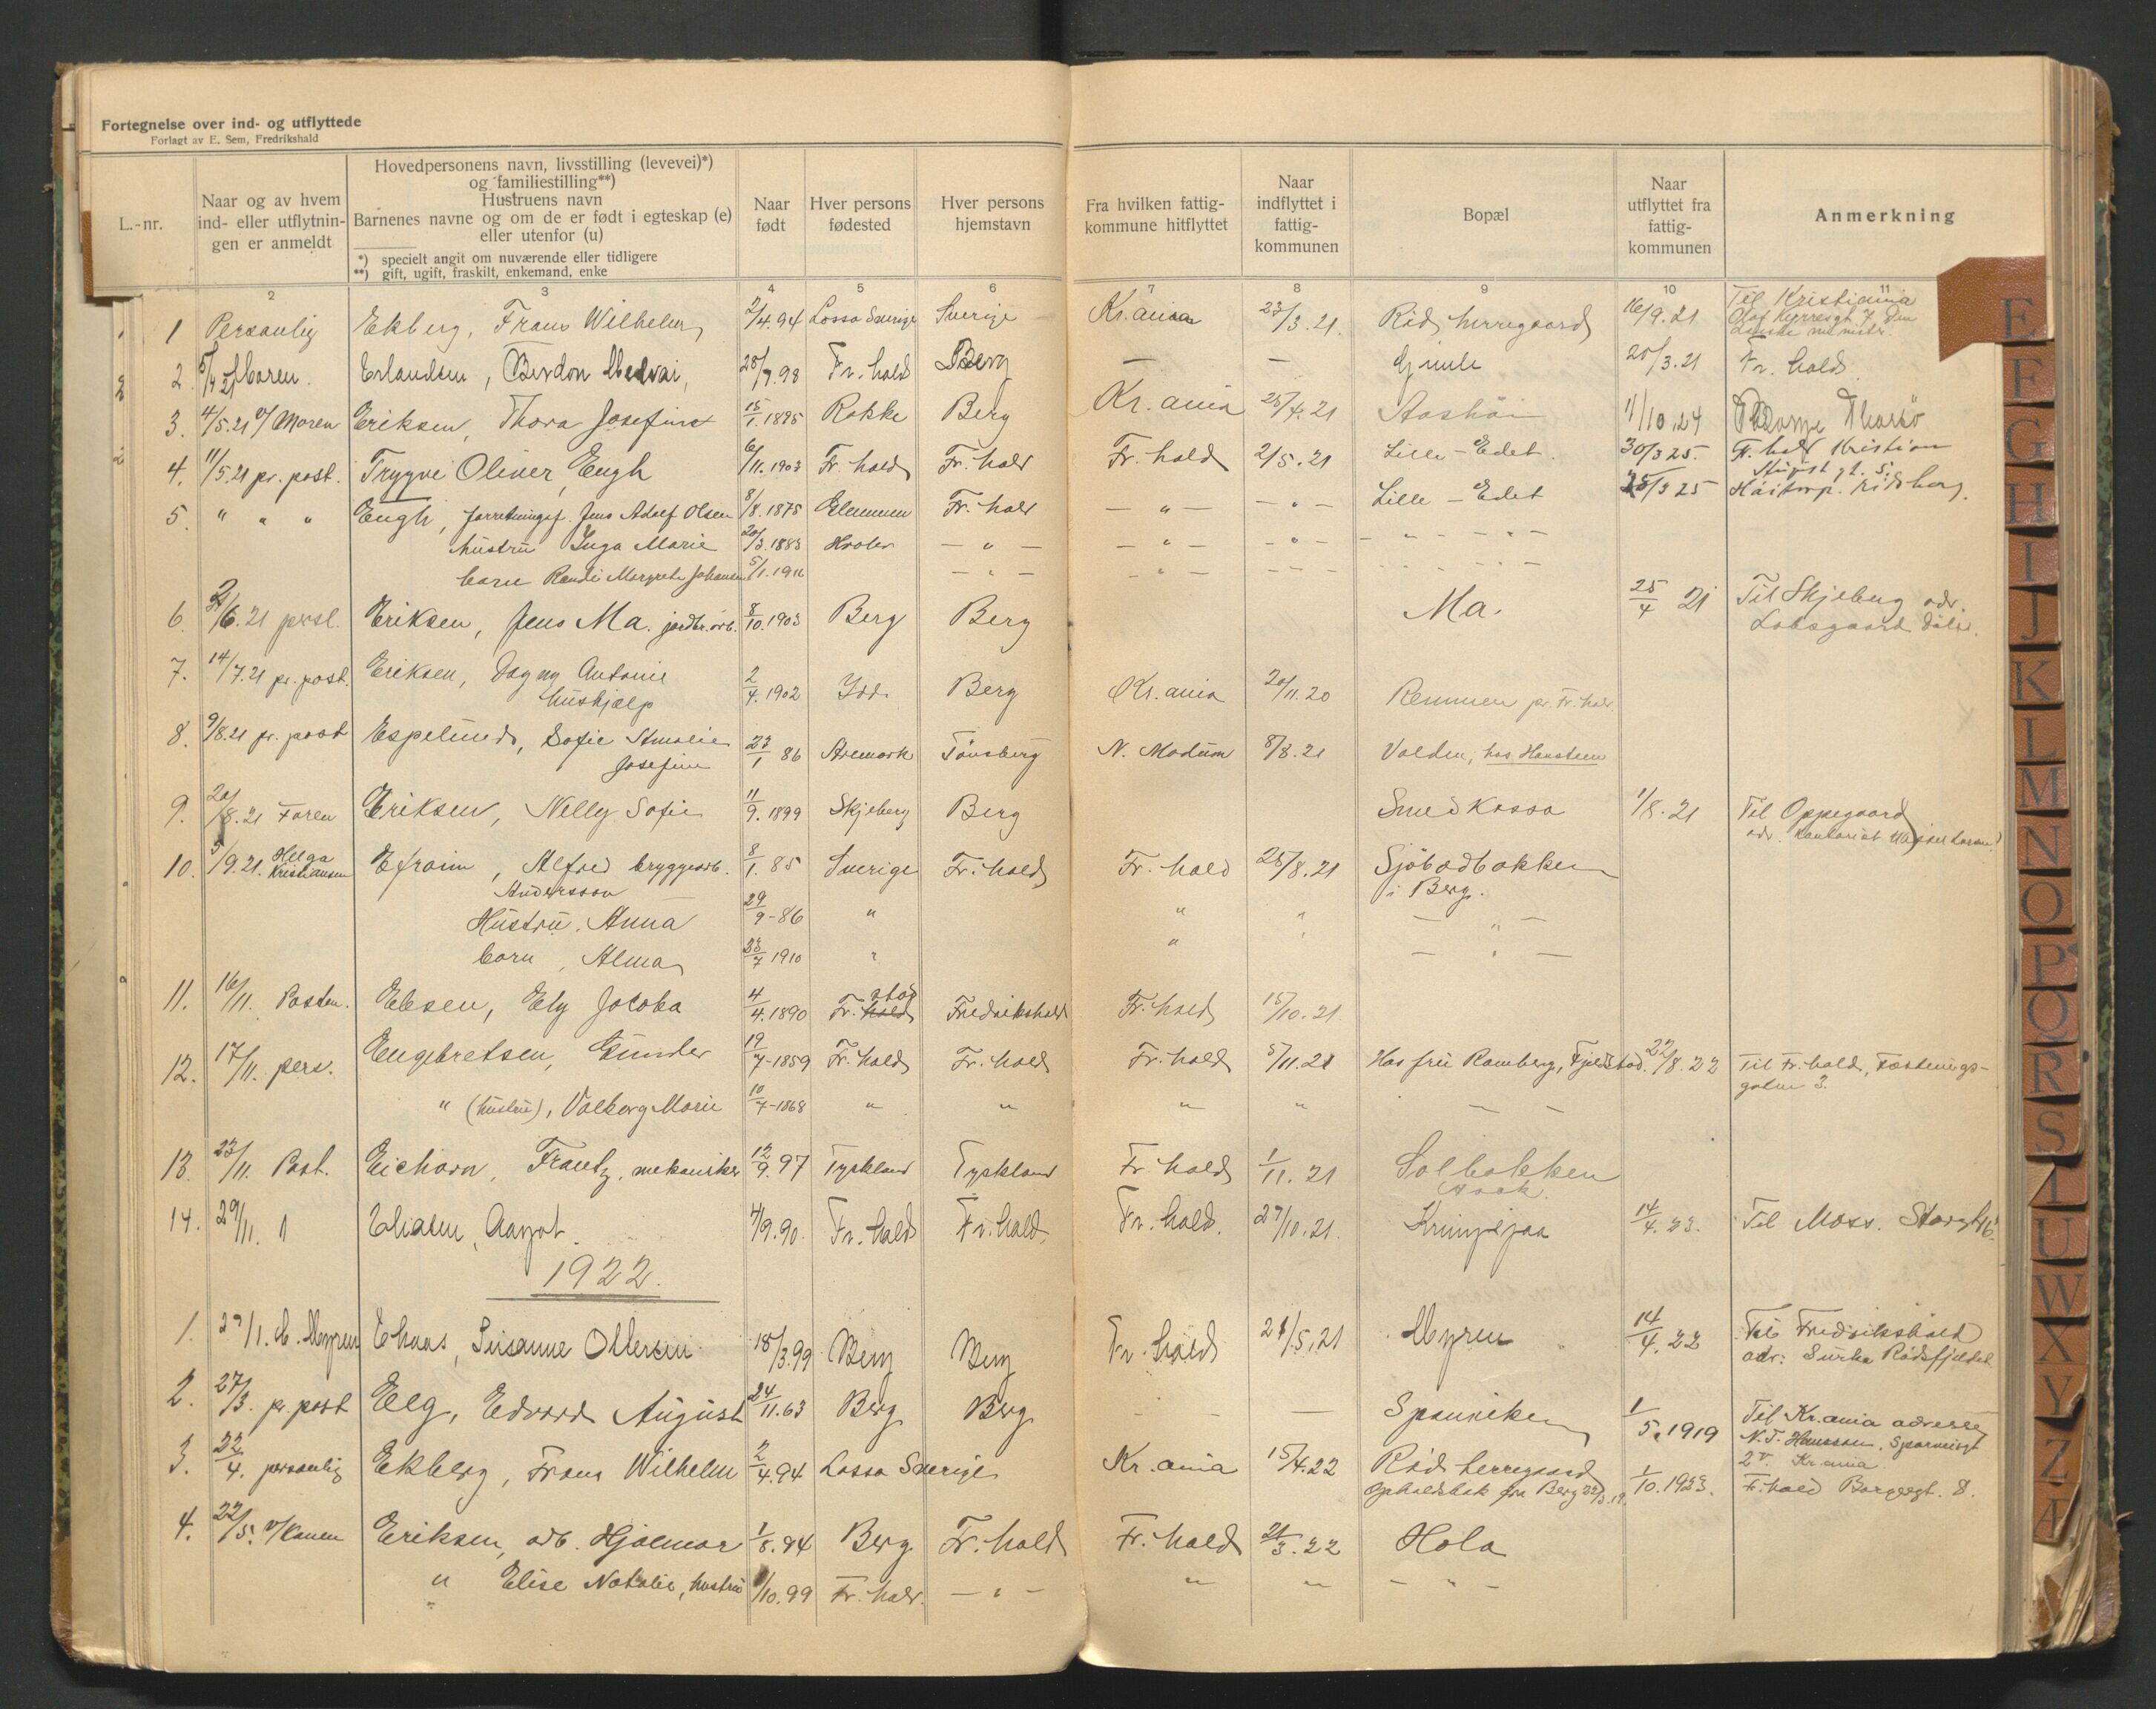 Fortegnelse over ind- og utflyttede
Forlagt av E. Sem, Fredrikshald
L.-nr.
Naar og av hvem ind- eller utflytnin- gen er anmeldt
Hovedpersonens navn, livsstilling (levevei)*)
og familiestilling**)
Hustruens navn
Barnenes navne og om de er født i egteskap (e)
eller utenfor (u)
*) specielt angit om nuværende eller tidligere
**) gift, ugift, fraskilt, enkemand, enke
Naar født
Hver persons fødested
Hver persons hjemstavn
Fra hvilken fattig- kommune hitflyttet
Naar indflyttet i fattig- kommunen
Bopæl
Naar utflyttet fra fattig- kommunen
Anmerkning
2 3 4 5 6 7 8 9 10 11
1 Personlig Ekberg, Frans Wilhelm 2/4.94 Lossa Sverige Sverige Kr.ania 23/3.21. Röd herregaard 16/9.21 Til Kristiania
Olaf Kyrresgt 7 Den
2. Moren. Erlandsen, 28/9.98 Fr. hald Berg — — Gimle 20/3.21 Fr. hald
3. 4/5.21 v/ Moren Eriksen, Thora Josefine 15/1.1895 Rokke Berg Kr.ania 25/4.21 Aashöi 1/10.24
4. 11/5.21 pr. post. Trygve Oliver Engh 6/11.1903 Fr. hald Fr. hald Fr. hald 2/5.21 Lille-Edet. 30/3 25. Fr. hald Kristian
August gt. 5.
5. " " " Engh, forretningsf. Jens Adolf Olsen 8/8.1875 Glemmen Fr. hald — " — — " — Lille-Edet 25/3 25
hustru Inga Marie 20/3.1883 Hvaler — " — — " — — " —
barn Randi Margrete Johansen 5/1.1911 — " — — " —
6. 2/6.21 persl. Eriksen, Jens Ma. jordbr.arb. 8/10.1903 Berg Berg Ma. 25/4 21 Til Skjeberg adr.
7. 14/7.21 pr. post. Eriksen, Dagny Antonie 2/4.1902 Idd. Berg Kr.ania 20/11.20 Remmen pr. Fr. hald.
hushjælp
8. 9/8.21 pr. post Espelund, Sofie Amalie 23/1 86 Aremark Tönsberg N. Modum 8/8.21 Volden, hos Hansteen
Josefine
9. 20/8.21 Faren Eriksen, Nelly Sofie 11/9.1899 Skjeberg Berg Smedkassa 1/8.21 Til Oppegaard
10. 5/9.21. Helga Kristiansen Efraim, Alfred bryggearb. 8/1.85 Sverige Fr. hald Fr. hald 25/8.21 Sjöbadbakken
Andersson i Berg.
Hustru. Anna 29/9-86 " " " — " —
barn, Alma 23/7 1910 " " " — " —
11. 16/11. Posten. Ebsen, Ely Jacoba 4/4.1890 Fr. hald stad Fredrikshald Fr. hald 15/10.21.
12. 17/11. pers. Engebretsen, Gunder 19/7-1859 Fr. hald Fr. hald Fr. hald 5/11.21 Hos fru Ramberg, Fjeldstad. 22/8.22 Til Fr. hald, Fæstnings-
gaten 3.
" (hustru), Valborg Marie 10/7-1868 " " " " — —
13. 23/11. Post. Eichorn, Frantz, mekaniker 12/9.97 Tyskland Tyskland Fr. hald 1/11.21 Solbakken
Asak.
14. 29/11. " Eliasen, Aagot. 4/9.90. Fr. hald Fr. hald. Fr. hald. 27/10.21. 14/4.23. Til Moss. Storgt 16.
1922.
1. 29/1. M. Myren Ehaas, Susanne Ottersen 18/3.99 Berg Berg Fr. hald 21/5.21 Myren 14/4.22 Til Fredrikshald
adr: Rödsfjeldet
2. 27/3. pr. post Elg, Edvard August 24/11.63 Berg Berg — — — Spanviken 1/5.1919 Til Kr.ania adresse
2den Kr.ania
3. 22/4. personlig Ekberg, Frans Wilhelm 2/4.94 Lossa Sverige Kr.ania 15/4.22 Röd herregaard 1/10.1923. Fr. hald Borgergt. 8.
Opholdsbok fra Berg
4. 22/5. v/ Konen Eriksen, arb. Hjalmar 1/8.94 Berg Fr. hald Fr. hald 21/3.22 Hola
" Elise Natalie, hustru /10.99 Fr. hald. — " — " " — " —
E
F
G
H
I
J
K
L
M
N
O
P
Q
R
S
T
U
W
X
Y
Z
Æ